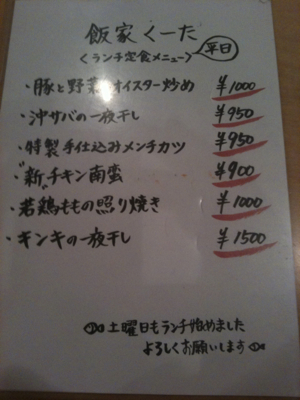 飯家くーた
〈ランチ定食メニュー〉平日
・豚と野菜オイスター炒め ¥1000
・沖サバの一夜干し ¥950
・特製手仕込みメンチカツ ¥950
・"新"チキン南蛮 ¥900
・若鶏ももの照り焼き ¥1000
・キンキの一夜干し ¥1500
土曜日もランチ始めました
よろしくお願いします